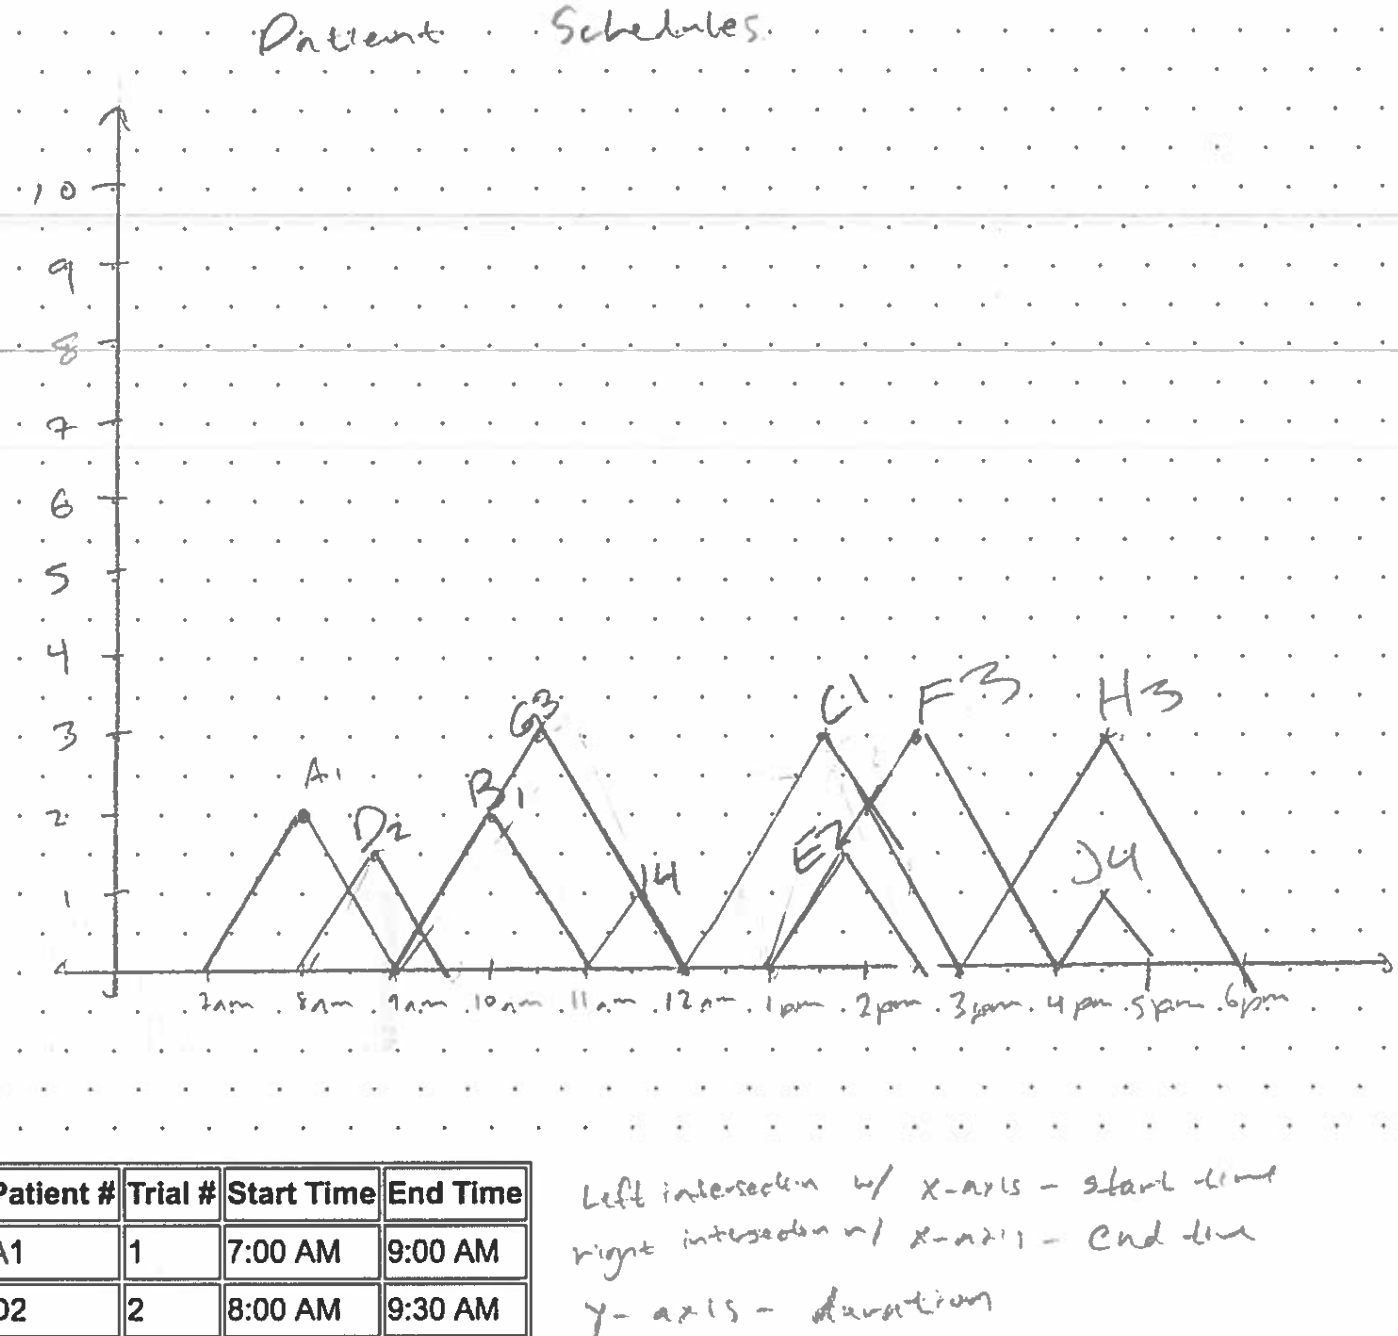 Patient Schedules
10
9
8
7
6
5
4
3
2
1
A1
D2
B1
G3
I4
C1
E2
F3
H3
J4
7am 8am 9am 10am 11am 12am 1pm 2pm 3pm 4pm 5pm 6pm
Patient # Trial # Start Time End Time
A1 1 7:00 AM 9:00 AM
D2 2 8:00 AM 9:30 AM
Left intersection w/ x-axis - start time
right intersection w/ x-axis - end time
y-axis - duration